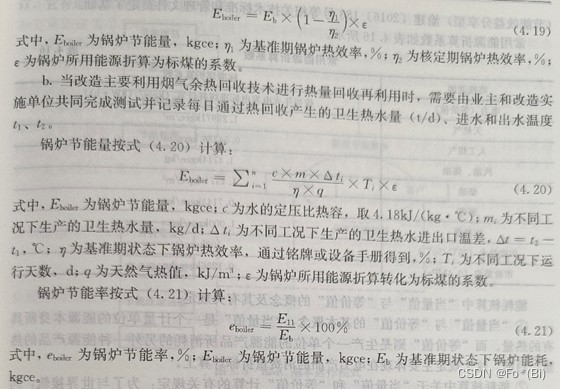 E_boiler = E_b × (1 − η₁/η₂) × ε (4.19)
式中，E_boiler 为锅炉节能量，kgce；η₁ 为基准期锅炉热效率，%；η₂ 为核定期锅炉热效率，%；
ε 为锅炉所用能源折算为标煤的系数。
b. 当改造主要利用烟气余热回收技术进行热量回收再利用时，需要由业主和改造实
施单位共同完成测试并记录每日通过热回收产生的卫生热水量（t/d）、进水和出水温度
t₁、t₂。
锅炉节能量按式（4.20）计算：
E_boiler = ∑ⁿᵢ₌₁ (c×m×Δtᵢ)/(η×q) × Tᵢ × ε (4.20)
式中，E_boiler 为锅炉节能量，kgce；c 为水的定压比热容，取 4.18kJ/(kg·℃)；mᵢ 为不同工
况下生产的卫生热水量，kg/d；Δtᵢ 为不同工况下生产的卫生热水进出口温差，Δt = t₂−
t₁，℃；η 为基准期状态下锅炉热效率，通过铭牌或设备手册得到，%；Tᵢ 为不同工况下运
行天数，d；q 为天然气热值，kJ/m³；ε 为锅炉所用能源折算转化为标煤的系数。
锅炉节能率按式（4.21）计算：
e_boiler = E₁₁/E_b × 100% (4.21)
式中，e_boiler 为锅炉节能率，%；E_boiler 为锅炉节能量，kgce；E_b 为基准期状态下锅炉能耗，
kgce。
CSDN @Fo*(Bi)